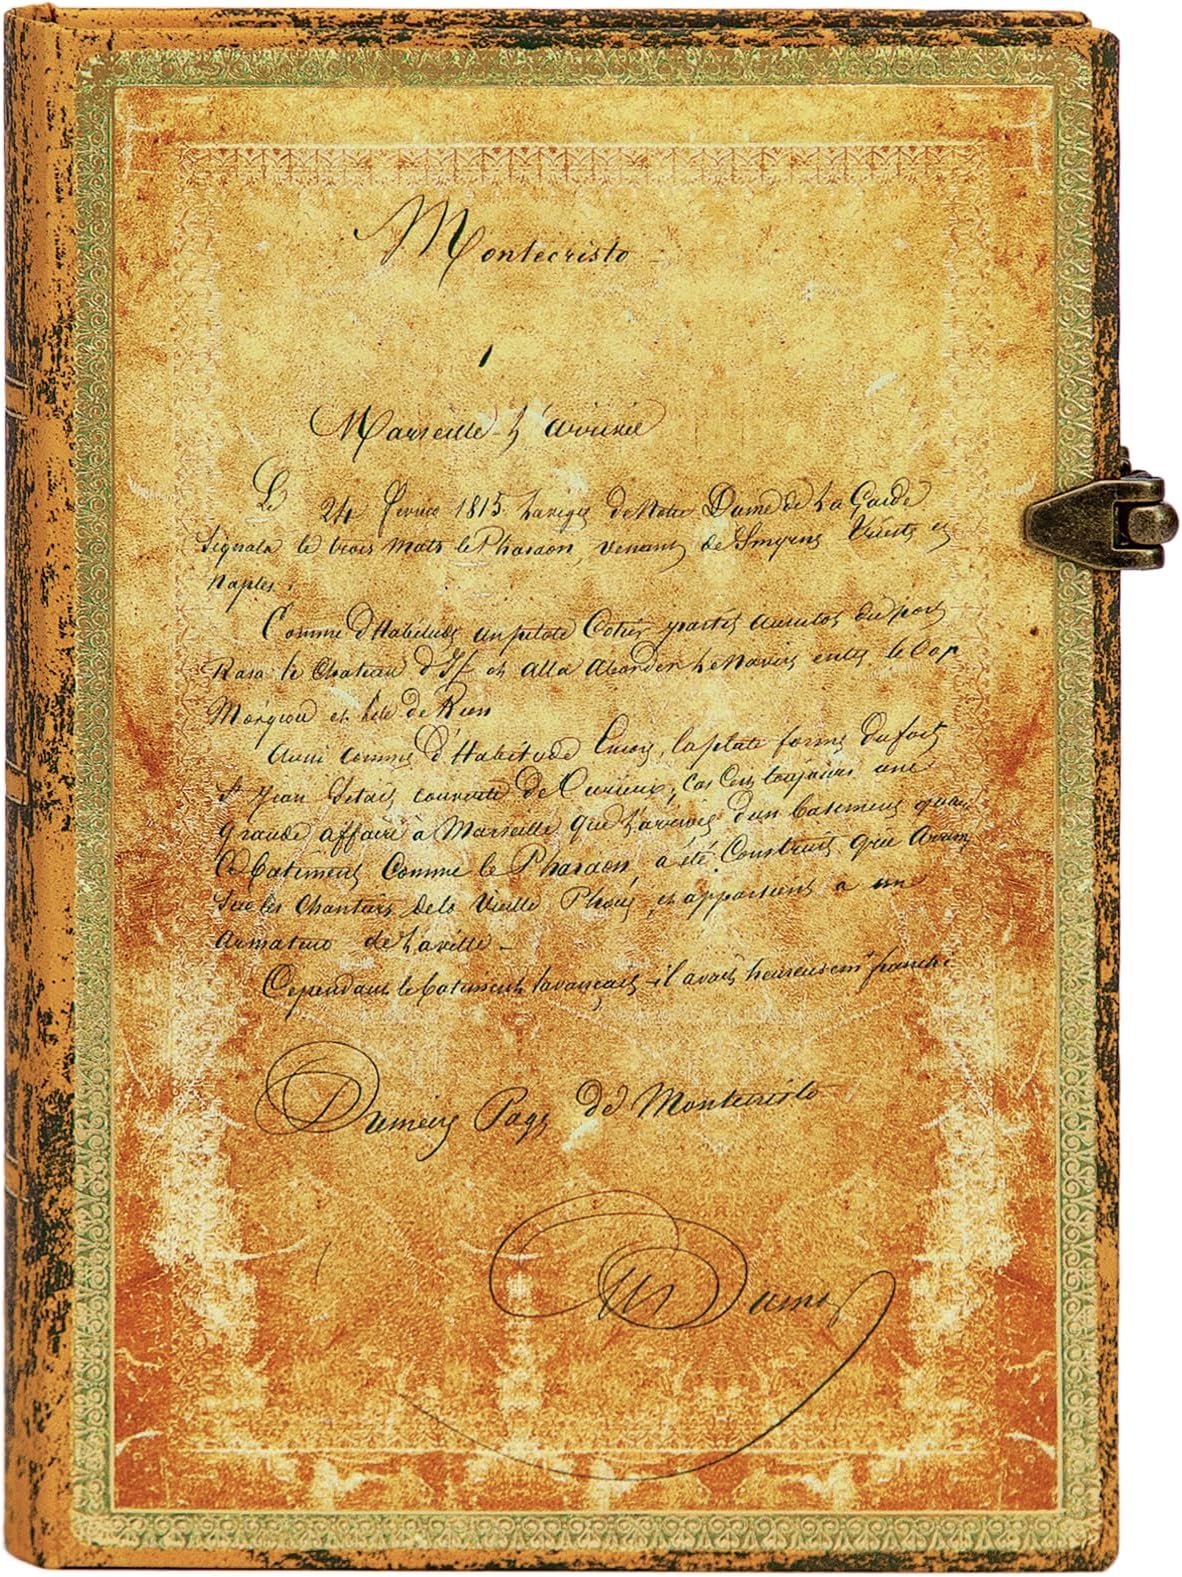 Montecristo –
1
Marseille – L'arrivée
Le 24 février 1815 la vigie de Notre Dame de La Garde
Signala le trois mats le Pharaon, venant de Smyrne Trieste et
Naples.
Comme d'Habitude un pilote Cotier partit aussitot du port
Rasa le Chateau d'If et alla aborder le navire entre le Cap
Morgiou et l'ile de Rion
Aussi comme d'Habitude encore, la plate forme du fort
St Jean s'etait couverte de Curieux, car C'est toujours une
grande affaire à Marseille que l'arrivée d'un batiment quand
Ce batiment Comme le Pharaon, a été Construit gréé Arrimé
sur les Chantiers de la Vieille Phocée, et appartient a un
Armateur de la ville –
Cependant le batiment s'avançait – il avait heureusemt franchi
Derniere Page de Montecristo
Alx Dumas